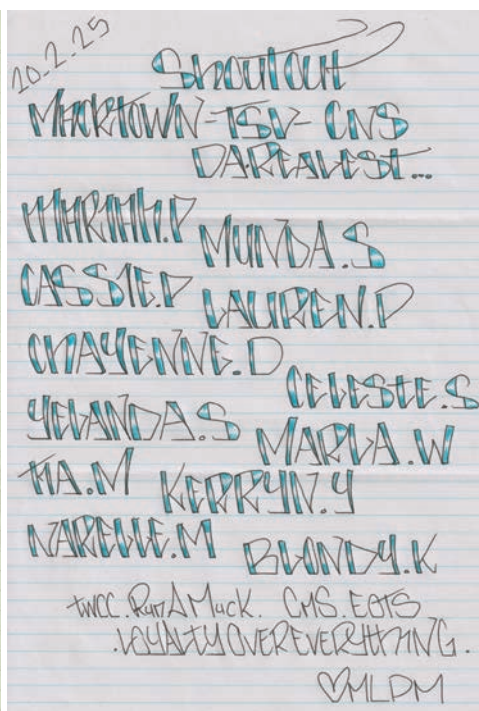 20.2.25
Shoutout
MACKTOWN-TSV-CNS
DA.REALEST...
MARIAH.P
MUNDA.S
CASSIE.P
LAUREN.P
CHAYENNE.D
CELESTE.S
YELANDA.S
MARLA.W
TIA.M
KERRYN.Y
NARELLE.M
BLONDY.K
TWCC. RunAMucK. CMS. EOTS
.LOYALTY OVER EVERYTHING.
♡MLDM